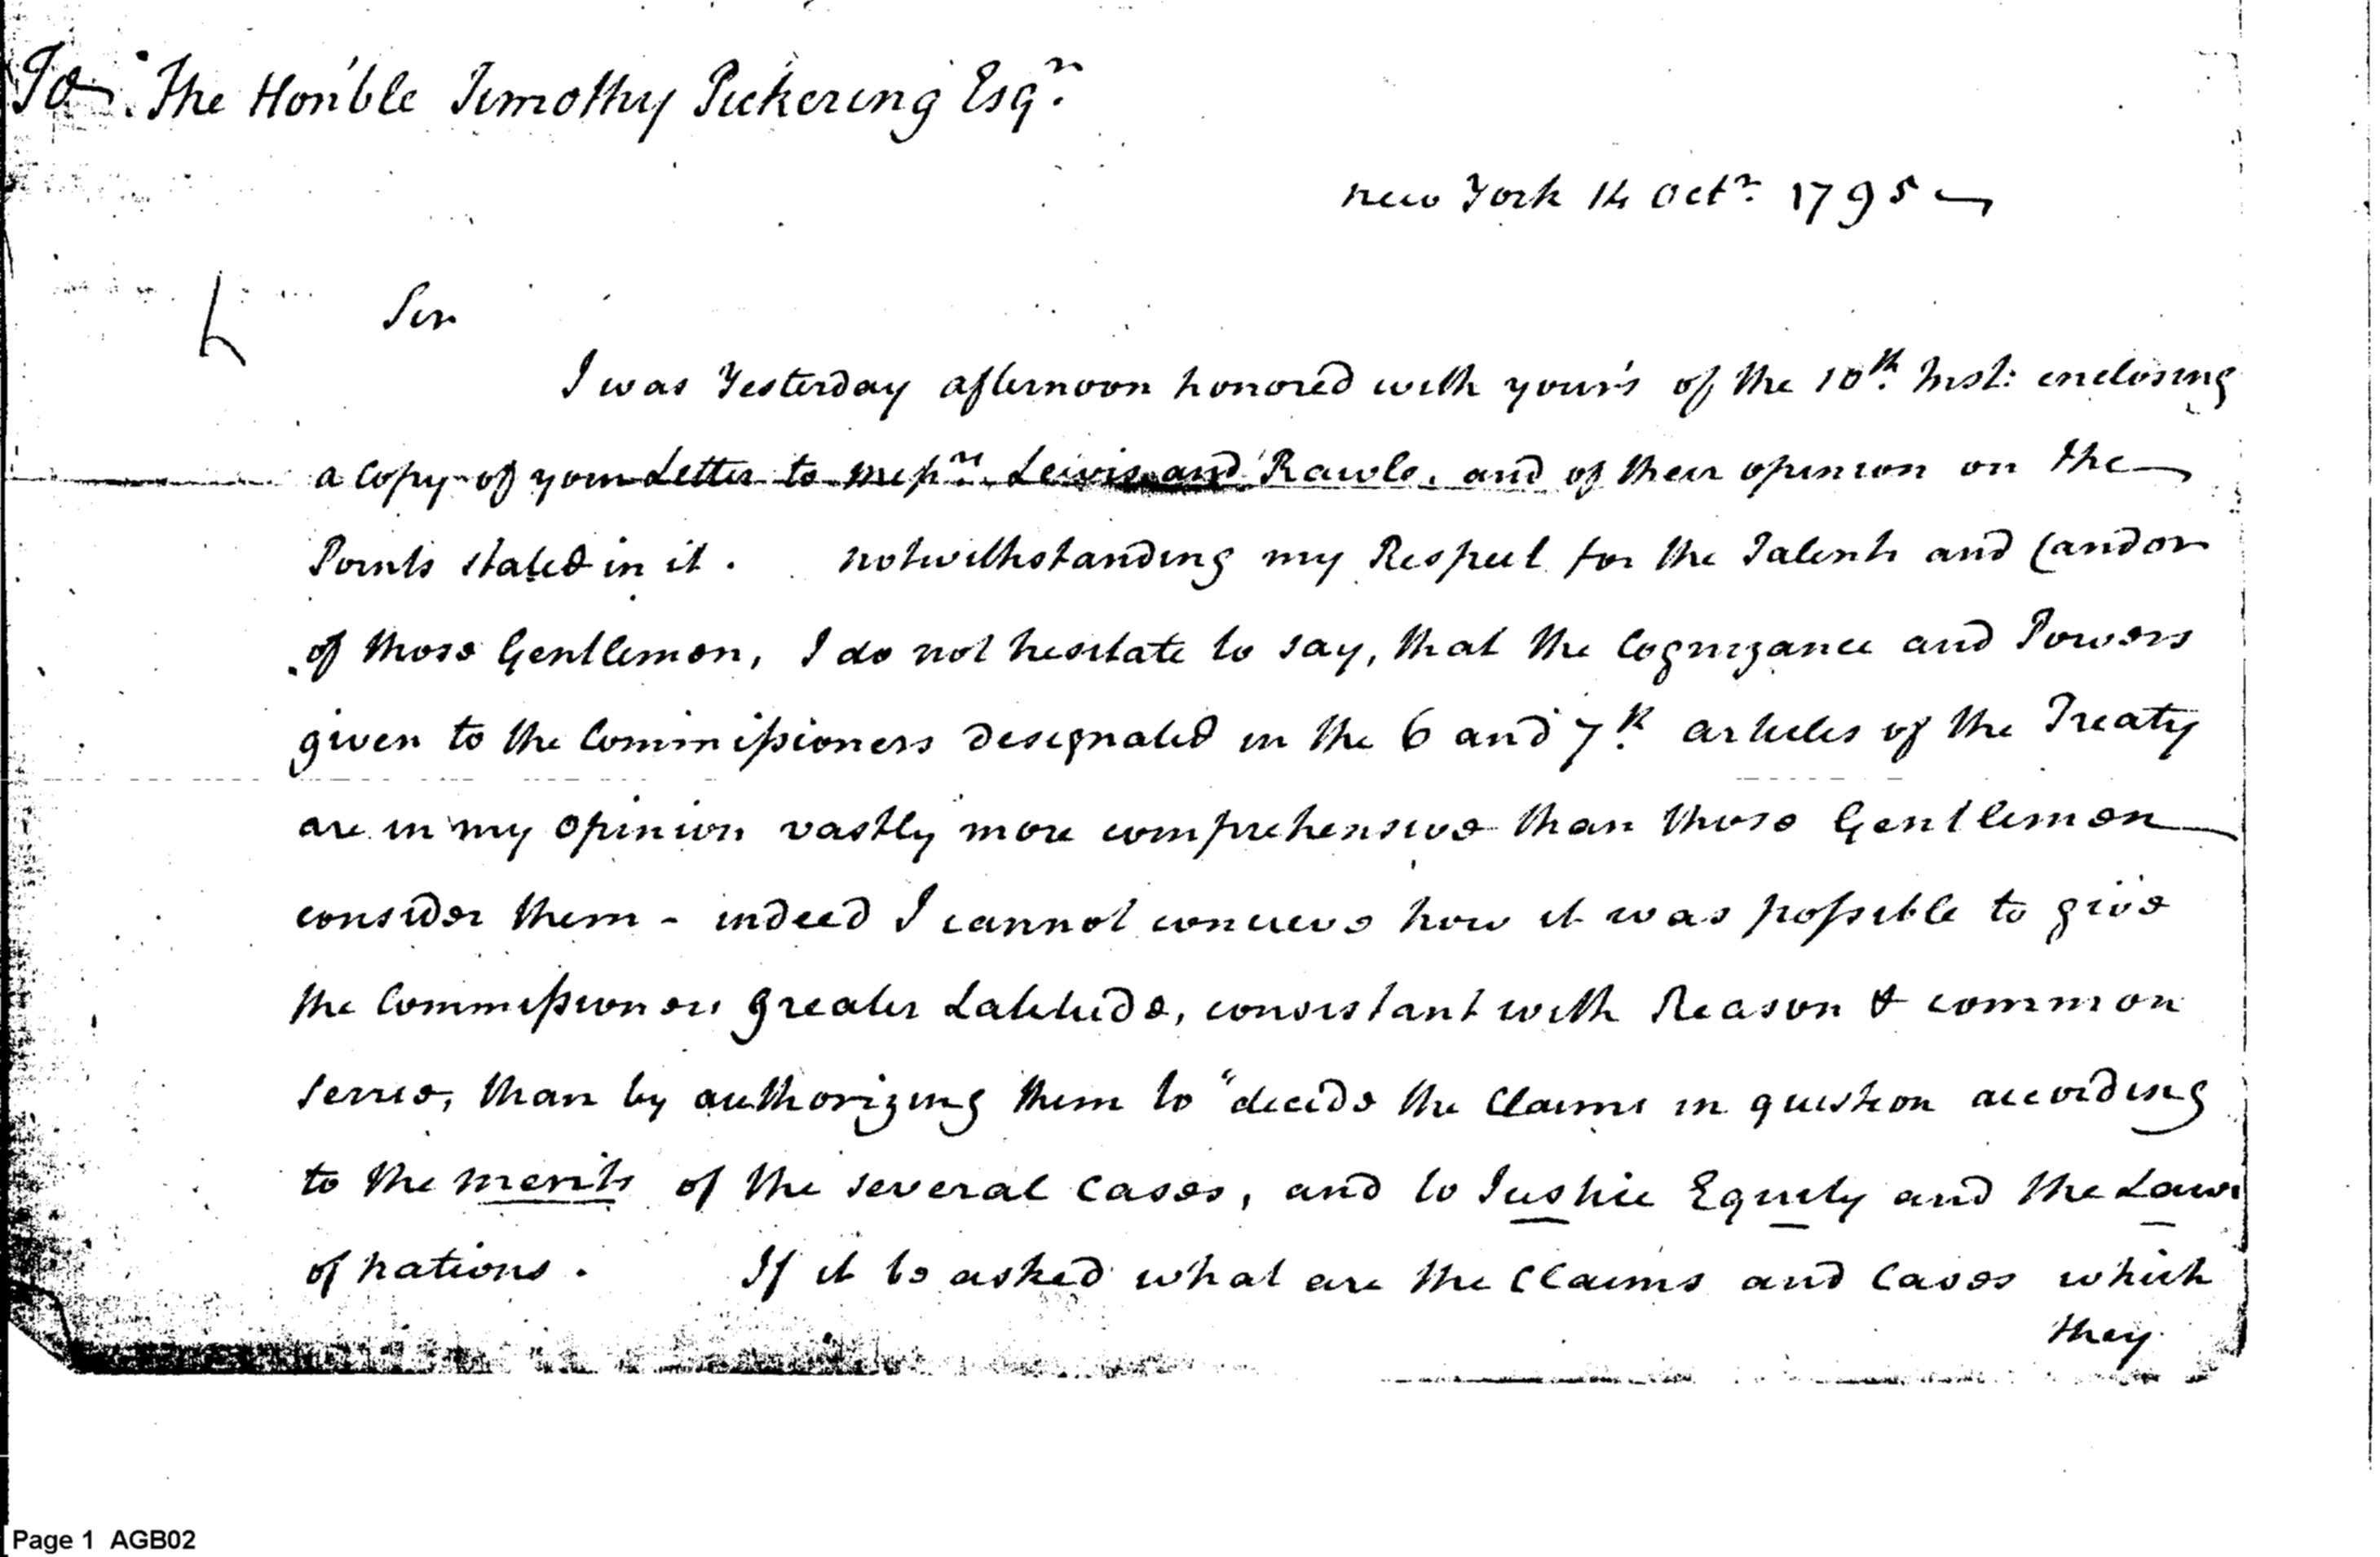 To. The Hon'ble Timothy Pickering Esqr.
New York 14 Octr. 1795
Sir
I was Yesterday afternoon honored with your's of the 10th. Inst: enclosing
a Copy of your Letter to Messrs. Lewis and Rawle, and of their opinion on the
Points stated in it. Notwithstanding my Respect for the Talents and Candor
of those Gentlemen, I do not hesitate to say, that the Cognizance and Powers
given to the Commissioners designated in the 6 and 7th. articles of the Treaty
are in my opinion vastly more comprehensive than those Gentlemen
consider them - indeed I cannot conceive how it was possible to give
the Commissioners greater Latitude, consistant with Reason & common
Sense, than by authorizing them to "decide the Claims in question according
to the merits of the several Cases, and to Justice Equity and the Laws
of Nations. If it be asked what are the Claims and Cases which
they
Page 1 AGB02